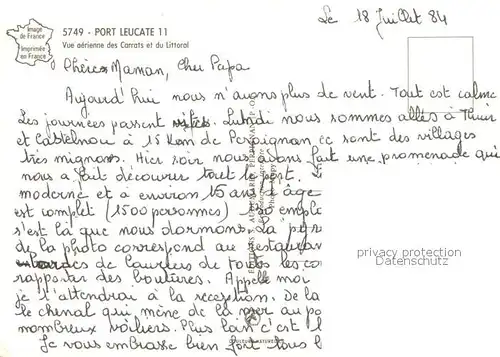 Image de France
Imprimée en France
5749 - PORT LEUCATE 11
Vue aérienne des Carrats et du Littoral
Le 18 Juillet 84
Chère Maman, Cher Papa
Aujourd'hui nous n'avons plus de vent. Tout est calme
Les journées passent vite. Lundi nous sommes allés à Thuir
et Castelnou à 15 Km de Perpignan ce sont des villages
très mignons. Hier soir nous avons fait une promenade qui
nous a fait découvrir tout le port.
moderne et a environ 15 ans d'âge
est complet (1500 personnes)
s'est là que nous dormons. La
de la photo correspond au restaurant
de lauriers de toutes les
rapporter des boutures. Appelle moi
je t'attendrai à la réception. De la
le chenal qui mène de la mer au po
nombreux voiliers. Plus loin c'est l
Je vous embrasse bien fort tous l
privacy protection
Datenschutz